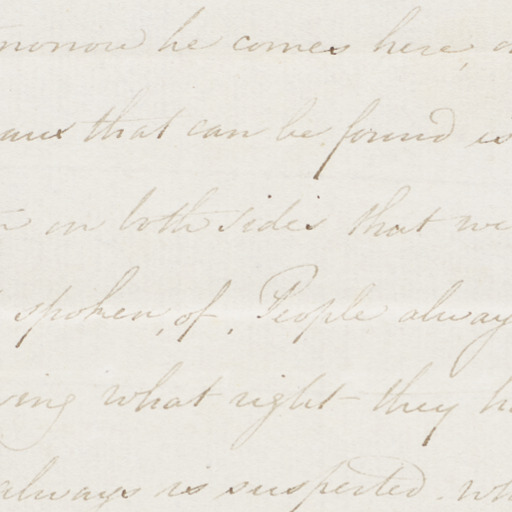 he comes here,
that can be found is
on both sides that we
spoken, of, People alway
what right they
always is suspected. wh